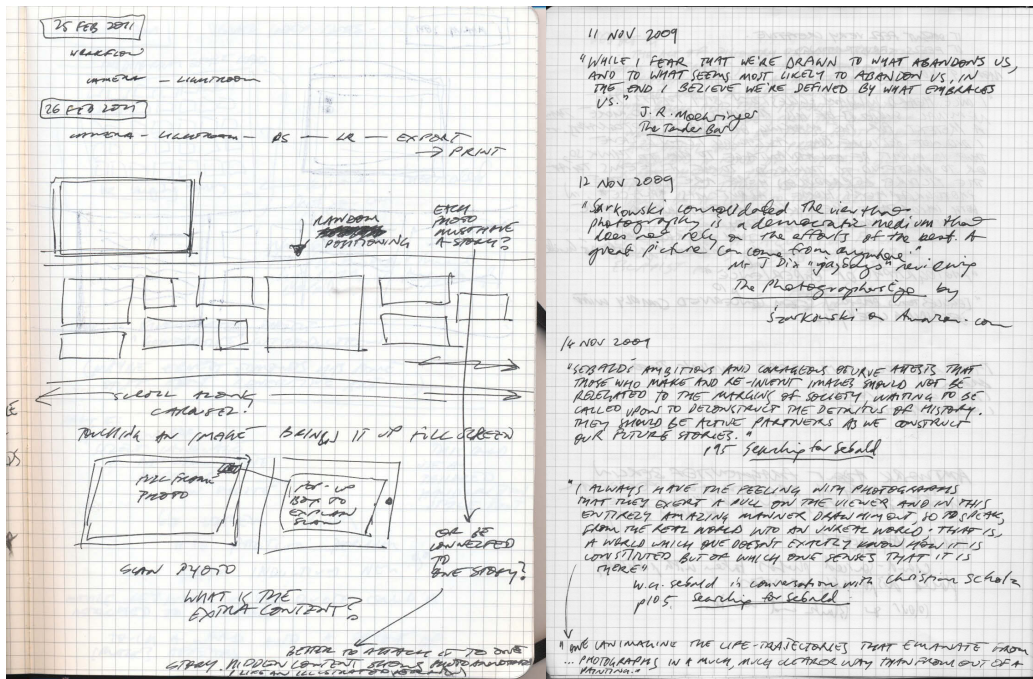 25 FEB 2011
WORKFLOW
CAMERA – LIGHTROOM
26 FEB 2011
CAMERA – LIGHTROOM – PS – LR – EXPORT
→ PRINT
RANDOM
POSITIONING
EACH
PHOTO
MUST HAVE
A STORY?
SCROLL ALONG
CAROUSEL?
TOUCHING AN IMAGE BRINGS IT UP FULL SCREEN
PHOTO
POP-UP
BOX TO
EXPLAIN
SCAN
SCAN PHOTO
OR BE
CONNECTED
TO
ONE STORY?
WHAT IS THE
EXTRA CONTENT?
BETTER TO ATTACH IT TO ONE
STORY. HIDDEN CONTENT
11 NOV 2009
"WHILE I FEAR THAT WE'RE DRAWN TO WHAT ABANDONS US,
AND TO WHAT SEEMS MOST LIKELY TO ABANDON US, IN
THE END I BELIEVE WE'RE DEFINED BY WHAT EMBRACES
US."
J.R. Moehringer
The Tender Bar
12 NOV 2009
"Sarkowski consolidated the view that
photography is a democratic medium that
does not rely on the efforts of the best. A
great picture can come from anywhere."
Mr J Dix "jaysdays" reviewing
The Photographers Eye by
Szarkowski on Amazon.com
14 NOV 2009
"SEBALD'S AMBITIOUS AND COURAGEOUS OEUVRE ATTESTS THAT
THOSE WHO MAKE AND RE-INVENT IMAGES SHOULD NOT BE
RELEGATED TO THE MARGINS OF SOCIETY, WAITING TO BE
CALLED UPON TO DECONSTRUCT THE DETRITUS OF HISTORY.
THEY SHOULD BE ACTIVE PARTNERS AS WE CONSTRUCT
OUR FUTURE STORIES."
p95 Searching for Sebald
"I ALWAYS HAVE THE FEELING WITH PHOTOGRAPHS
THAT THEY EXERT A PULL ON THE VIEWER AND IN THIS
ENTIRELY AMAZING MANNER DRAW HIM OUT, SO TO SPEAK,
FROM THE REAL WORLD INTO AN UNREAL WORLD, THAT IS,
A WORLD WHICH ONE DOESN'T EXACTLY KNOW HOW IT IS
CONSTITUTED BUT OF WHICH ONE SENSES THAT IT IS
THERE"
W.G. Sebald in conversation with Christian Scholz
p105 Searching for Sebald
"ONE CAN IMAGINE THE LIFE-TRAJECTORIES THAT EMANATE FROM
... PHOTOGRAPHS IN A MUCH, MUCH CLEARER WAY THAN FROM OUT OF A
PAINTING."